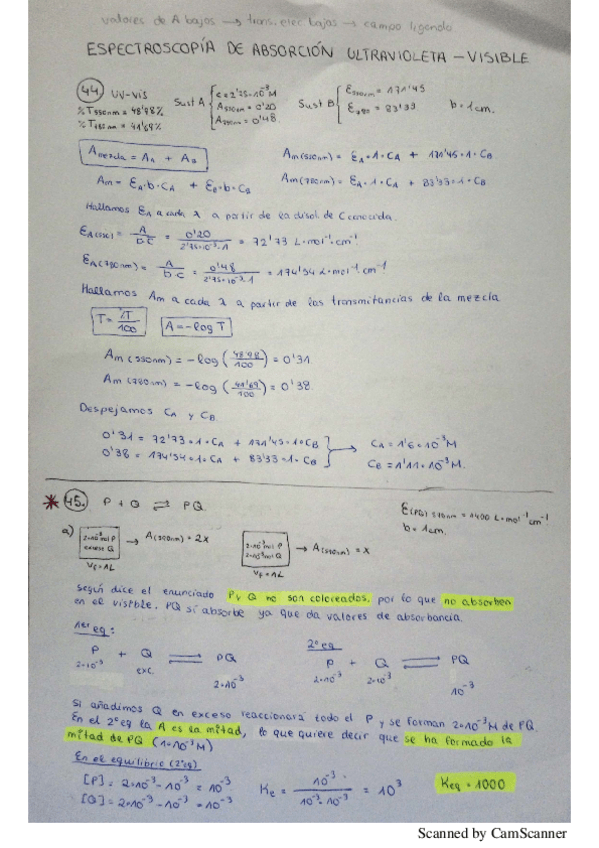 valores de A bajos → trans. elec. bajas → campo ligando
ESPECTROSCOPÍA DE ABSORCIÓN ULTRAVIOLETA - VISIBLE
44 UV-VIS
%T550nm = 48'98%
%T780nm = 41'69%
Sust A { c = 2'75·10⁻³ M
A550nm = 0'20
A780nm = 0'48
Sust B { ε550nm = 171'45
ε780 = 83'33
b = 1cm.
Amezcla = AA + AB
Am = εA·b·CA + εB·b·CB
Am(550nm) = εA·1·CA + 171'45·1·CB
Am(780nm) = εA·1·CA + 83'33·1·CB
Hallamos εA a cada λ a partir de la disol de C conocida.
εA(550) = A/b·C = 0'20/2'75·10⁻³·1 = 72'73 L·mol⁻¹·cm⁻¹
εA(780nm) = A/b·C = 0'48/2'75·10⁻³·1 = 174'54 L·mol⁻¹cm⁻¹
Hallamos Am a cada λ a partir de las transmitancias de la mezcla
T = %T/100 A = -log T
Am(550nm) = -log (48'98/100) = 0'31
Am(780nm) = -log (41'69/100) = 0'38
Despejamos CA y CB.
0'31 = 72'73·1·CA + 171'45·1·CB
0'38 = 174'54·1·CA + 83'33·1·CB
CA = 1'6·10⁻³M
CB = 1'11·10⁻³M.
* 45. P + Q ⇌ PQ
ε(PQ) 510nm = 1400 L·mol⁻¹cm⁻¹
b = 1cm
a) 2·10⁻³mol P
exceso Q
Vf = 1L
→ A(510nm) = 2x
2·10⁻³mol P
2·10⁻³mol Q
Vf = 1L
→ A(510nm) = x
según dice el enunciado P y Q no son coloreados, por lo que no absorben
en el visible. PQ sí absorbe ya que da valores de absorbancia.
1er eq:
P + Q ⇌ PQ
2·10⁻³ exc. 2·10⁻³
2º eq
P + Q ⇌ PQ
2·10⁻³ 2·10⁻³ 10⁻³
Si añadimos Q en exceso reaccionará todo el P y se forman 2·10⁻³M de PQ.
En el 2º eq la A es la mitad, lo que quiere decir que se ha formado la
mitad de PQ (1·10⁻³M)
En el equilibrio (2º eq)
[P] = 2·10⁻³ - 10⁻³ = 10⁻³
[Q] = 2·10⁻³ - 10⁻³ = 10⁻³
Ke = 10⁻³/10⁻³·10⁻³ = 10³
Keq = 1000
Scanned by CamScanner